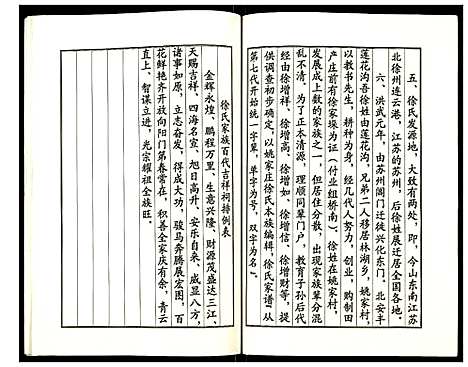 五、徐氏发源地，大致有两处，即，今山东南江苏
北徐州连云港，江苏的苏州，后徐姓展迁居全国各地。
六、洪武元年，由苏州阊门迁徒兴化东门、北安丰
莲花沟吾徐姓由莲花沟，兄弟二人移居林湖乡，姚家村，
以教书先生，耕种为身，经几代人努力，创业，购制田
产庄前有徐家垛为证（付业组桥南）。徐姓在姚家村，
发展成上数的家族之一，但居住分散，出现家族辈分混
乱不清，为了正本清源，理顺同辈门户，教育子孙后代
经由徐增祥、徐增高、徐增如、徐增信、徐增财等，提
供调查初步确定，以姚家庄徐氏本族编辑，徐氏家谱（从
第七代开始统一字辈，单字为号，双字为名）。
徐氏家族百代吉祥祠排例表
金辉永煌、鹏程万里、生意兴隆、财源茂盛达三江、
天赐吉祥、四海名宣、旭日高升、安乐自来、威显八方，
诸事如原，立志奋发、得成大功，骏马奔腾展宏图，百
花鲜艳齐开放向阳门第春常在，积善全家庆有余，青云
直上、智谋立进，光宗耀祖全族旺。